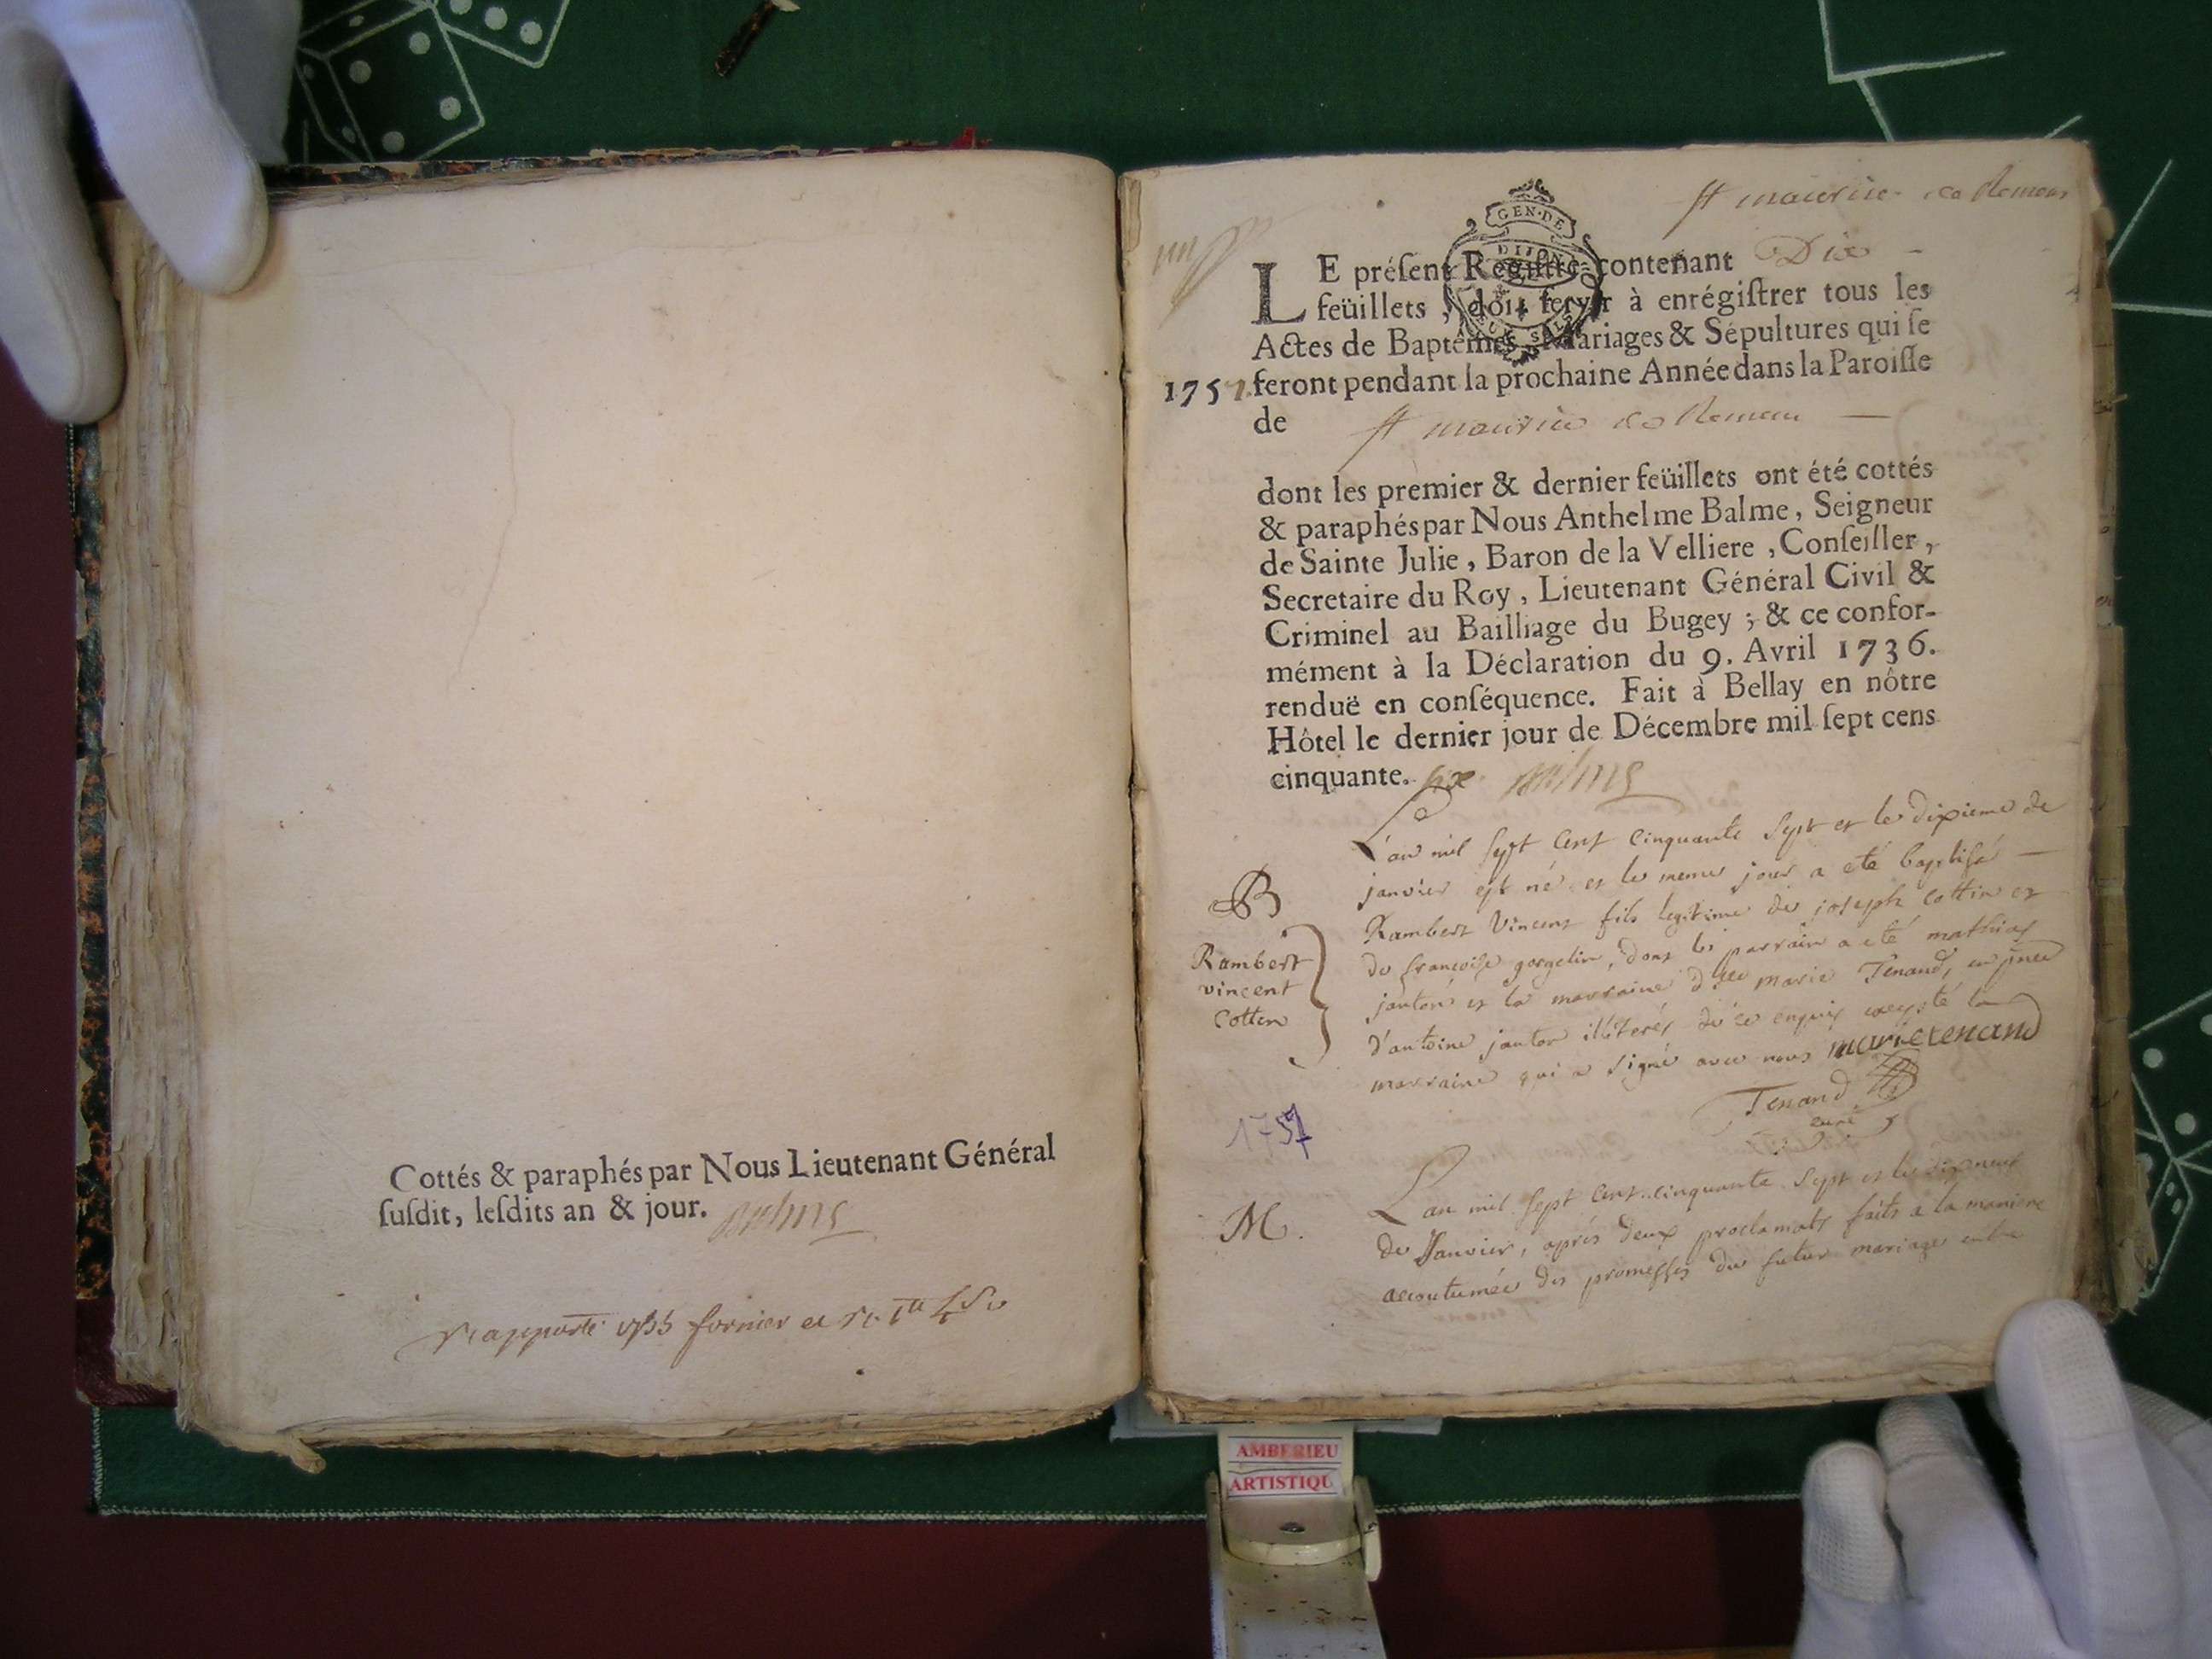 Cottés & paraphés par Nous Lieutenant Général
ſuſdit, leſdits an & jour.
st maurice de Remens
GEN·DE
DIJON
LE préſent Regiſtre contenant Dix
feüillets, doit ſervir à enrégiſtrer tous les
Actes de Baptêmes, Mariages & Sépultures qui ſe
1757. feront pendant la prochaine Année dans la Paroiſſe
de st maurice de Remens
dont les premier & dernier feüillets ont été cottés
& paraphés par Nous Anthelme Balme, Seigneur
de Sainte Julie, Baron de la Velliere, Conſeiller,
Secretaire du Roy, Lieutenant Général Civil &
Criminel au Bailliage du Bugey; & ce confor-
mément à la Déclaration du 9. Avril 1736.
renduë en conſéquence. Fait à Bellay en nôtre
Hôtel le dernier jour de Décembre mil ſept cens
cinquante. six
L'an mil sept cent cinquante sept et le dixieme de
janvier est né et le meme jour a eté baptisé
Rambert Vincent fils legitime de joseph cottin et
de françoise gorgelin, dont le parrain a eté mathias
janton et la marraine dlle marie Tenand,
d'antoine janton illiterés de ce enquis excepté la
marraine qui a signé avec nous marie tenand
Tenand
curé
B
Rambert
vincent
Cottin
1757
M.
L'an mil sept cent cinquante sept et le dix neuf
de Janvier, après deux proclamats faits a la maniere
accoutumée des promesses du futur mariage entre
AMBERIEU
ARTISTIQU